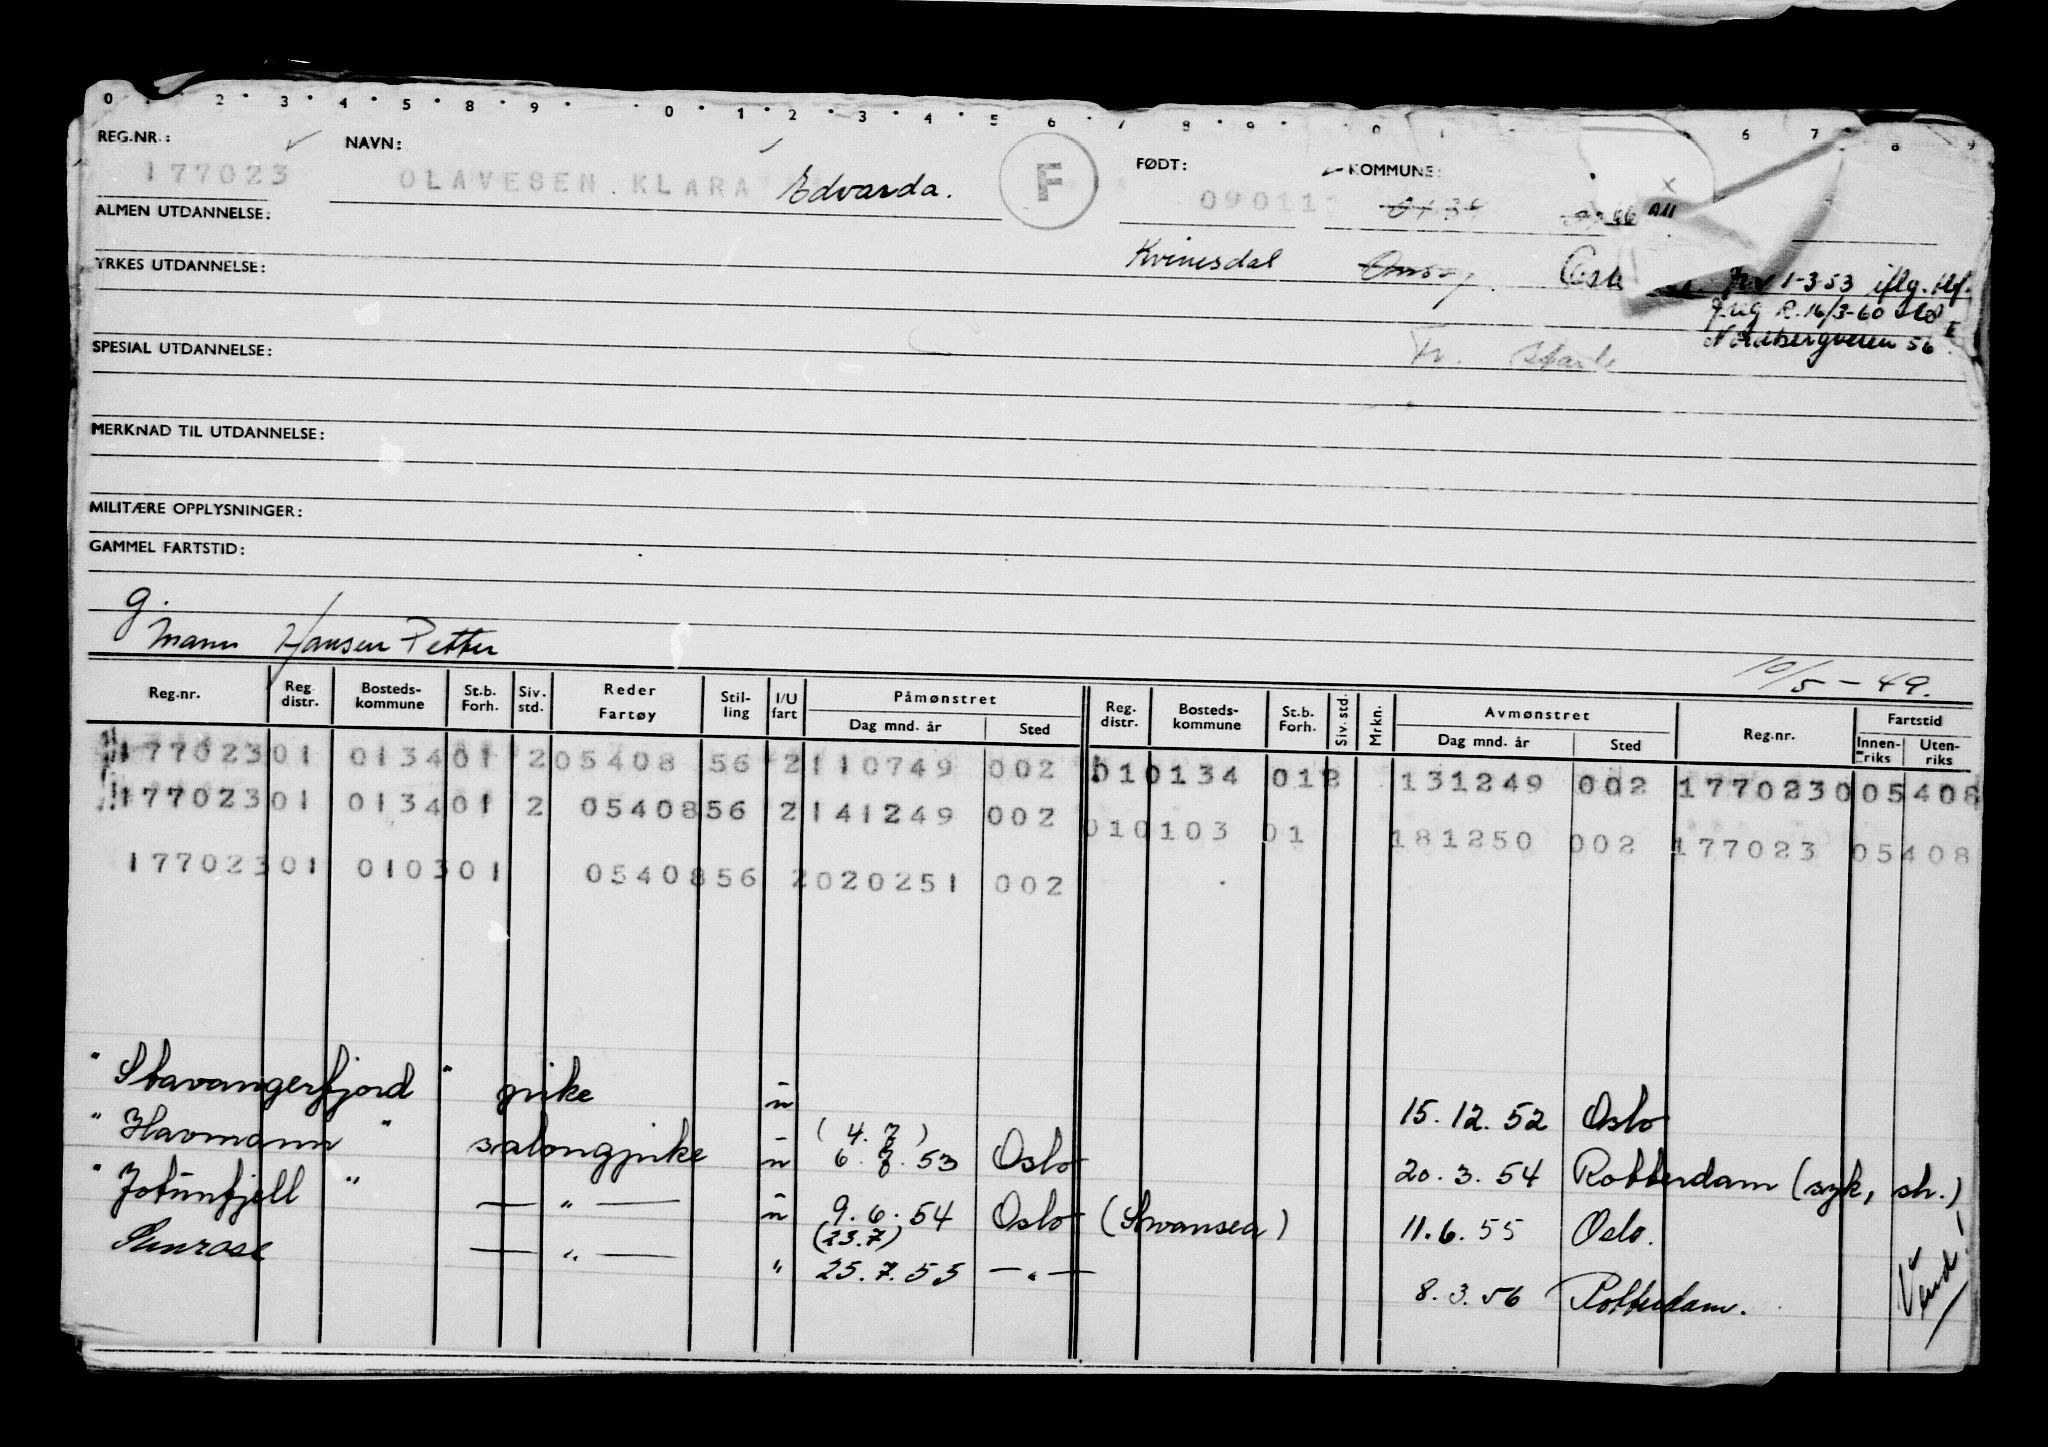 0 2 3 4 5 8 9 0 1 2 3 4 5 6 7 8 9 0 1 6 7 8 9
REG.NR.: NAVN: F FØDT: KOMMUNE:
177023 OLAVESEN KLARA Edvarda. 09011 0134 66
ALMEN UTDANNELSE:
Kvinesdal Onsøy
YRKES UTDANNELSE: 1-3-53 iflg. tlf.
R. 16/3-60
SPESIAL UTDANNELSE: Nordbergveien 56
MERKNAD TIL UTDANNELSE:
MILITÆRE OPPLYSNINGER:
GAMMEL FARTSTID:
g.
Mann Hansen Petter
10/5 - 49.
Reg.nr. Reg. distr. Bosteds- kommune St.b. Forh. Siv. std. Reder Fartøy Stil- ling I/U fart Påmønstret Dag mnd. år Sted Reg. distr. Bosteds- kommune St.b. Forh. Siv. std. Mrkn. Avmønstret Dag mnd. år Sted Reg.nr. Fartstid Innen- riks Uten- riks
177023 01 0134 01 2 05408 56 2 110749 002 01 0134 01 2 131249 002 177023 0 05408
177023 01 0134 01 2 05408 56 2 141249 002 01 0103 01 181250 002 177023 05408
177023 01 0103 01 05408 56 2 020251 002
" Stavangerfjord " pike u 15.12.52 Oslo
" Havmann " salongpike u (4.7) 6.7.53 Oslo 20.3.54 Rotterdam (syk, str.)
" Jotunfjell " — " — u 9.6.54 Oslo (Swansea) 11.6.55 Oslo.
Sunrose — " — " (23.7) 25.7.55 — " — 8.3.56 Rotterdam.
Vend!